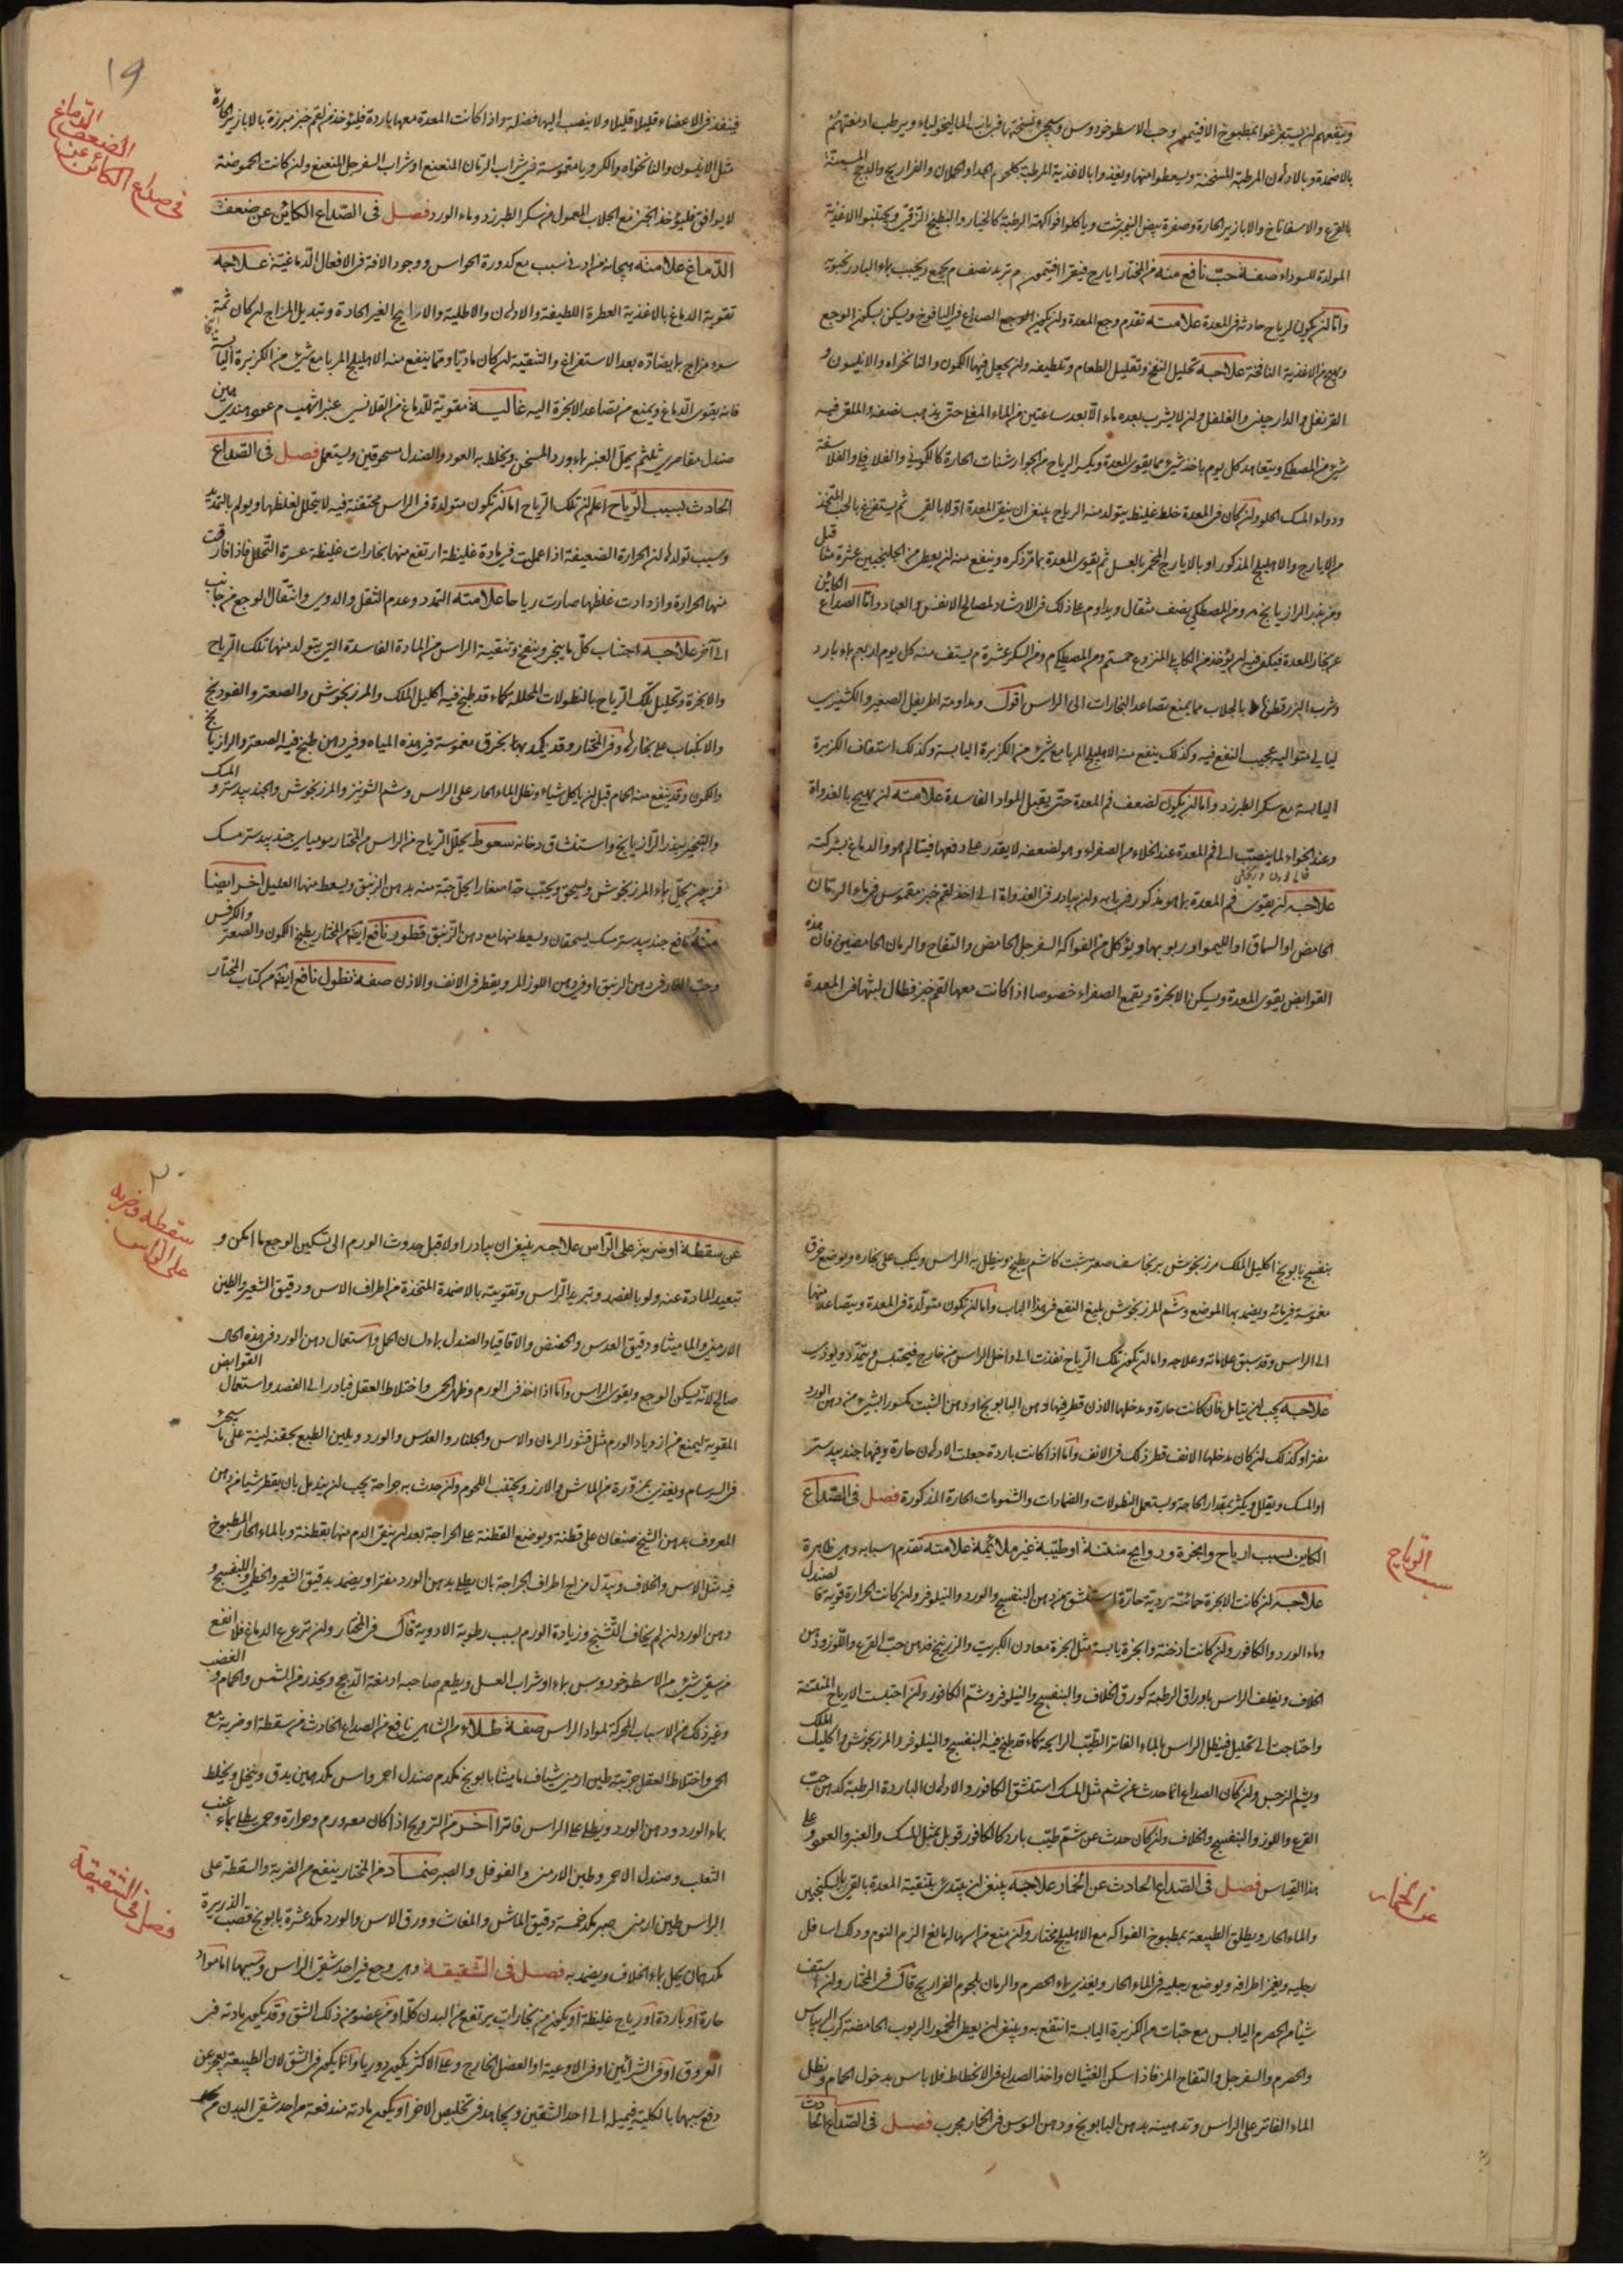 وينفعهم ان يستفرغوا بمطبوخ الافتيمون وحب الاسطوخودوس ونسختها في باب الماليخوليا ويرطب ادمغتهم
بالاضمدة وبالادهان المرطبة المسخنة ويسعطوا منها ويغذوا بالاغذية المرطبة كلحوم الجدا والحملان والفراريج والدجج المسمنة
بالقرع والاسفاناخ والابازير الحارة وصفرة بيض النيمرشت وياكلوا فواكهة الرطبة كالخيار والبطيخ الرقي ويجتنبوا الاغذية
المولدة للسوداء صفة حب نافع منه من المختار ايارج فيقرا افتيمون م تربد نصف م يجمع ويحبب بماء البادرنجبوية
واما ان يكون لرياح حادثة في المعدة علامته تقدم وجع المعدة وان يكون الصداع في اليافوخ ويسكن بسكون الوجع
ويهيج من الاغذية النافخة علاجه تحليل النفخ وتقليل الطعام وتلطيفه وان يجعل فيها الكمون والنانخواه والانيسون و
القرنفل والدارچيني والفلفل وان لا يشرب بعده ماء الا بعد ساعتين من الماء المغلي حتى يذهب نصفه والملقى فيه
شيء من المصطكي ويتعاهد كل يوم باخذ شيء مما يقوي المعدة ويكسر الرياح من الجوارشنات الحارة كالكموني والفلافلي والفلاسفة
ودواء المسك الحلو وان كان في المعدة خلط غليظ يتولد منه الرياح ينبغي ان ينقى المعدة اولا بالقيء ثم يستفرغ بالحب المتخذ
من الايارج والاهليلج المذكور او بالايارج المخمر بالعسل ثم يقوى المعدة بما مر ذكره وينفع منه ان يعطى من الجلنجبين عشرة مثاقيل
ومن بذر الرازيانج م ومن المصطكي نصف مثقال ويداوم على ذلك في الارشاد لمصالح الانفس والعباد واما الصداع الكائن
عن بخار المعدة فيكفي فيه ان يؤخذ من الكابلي المنزوع خمستم ومن المصطكي م ومن السكر عشرة م يستف منه كل يوم اربعم بماء بارد
وشرب البزرقطونا بالجلاب مما يمنع تصاعد البخارات الى الراس اقول ومداومة اطريفل الصغير والكشنيزي
ليالي متوالية عجيب النفع فيه وكذلك ينفع منه الاهليلج المربا مع شيء من الكزبرة اليابسة وكذلك استفاف الكزبرة
اليابسة مع سكر الطبرزد واما ان يكون لضعف فم المعدة حتى يقبل المواد الفاسدة علامته ان يهيج بالغدواة
وعند الخواء لما ينصب الى فم المعدة عند الخلاء من الصفراء وهو لضعفه لا يقدر على دفعها فيتالم هو والدماغ بشركته
علاجه ان يقوى فم المعدة بما هو مذكور في بابه وان يبادر في الغدواة الى اخذ لقم خبز مغموس في ماء الرمان
الحامض او السماق او الليمو او ربوبها ويؤكل من الفواكه السفرجل الحامض والتفاح والرمان الحامضين فان هذه
القوابض يقوي المعدة ويسكن الابخرة ويقمع الصفراء خصوصا اذا كانت معها لقم خبز فطال لبثها في المعدة
١٩
في صداع الكائن عن
الضعف
الدماغ
فينفذ في الاعضاء قليلا قليلا ولا ينصب اليها فضلة واذا كانت المعدة معها باردة فليؤخذ من لقم خبز مبرزة بالابازير الحارة
مثل الانيسون والنانخواه والكرويا مغموسة في شراب الرمان المنعنع او شراب السفرجل المنعنع وان كانت الحموضة
لا يوافق فليؤخذ الخبز مع الجلاب المعمول من سكر الطبرزد وماء الورد فصل في الصداع الكائن عن ضعف
الدماغ علامته هيجانه من ادنى سبب مع كدورة الحواس ووجود الافة في الافعال الدماغية علاجه
تقوية الدماغ بالاغذية العطرة اللطيفة والادهان والاطلية والاراييح الغير الحادة وتبديل المزاج ان كان ثمة
سوء مزاج بما يضاده بعد الاستفراغ والتنقية ان كان ماديا ومما ينفع منه الاهليلج المربا مع شيء من الكزبرة اليابسة
فانه يقوي الدماغ ويمنع من تصاعد الابخرة اليه غالية مقوية للدماغ من القلانسي عنبر اشهب م عود هندي
صندل مقاصري ثلثم يحل العنبر بماء ورد المسخن ويخلط به العود والصندل مسحوقين ويستعمل فصل في الصداع
الحادث بسبب الرياح اعلم ان تلك الرياح اما ان تكون متولدة في الراس محتقنة فيه لا يتحلل لغلظها ويولم بالتمديد
وسبب تولدها ان الحرارة الضعيفة اذا عملت في مادة غليظة ارتفع منها بخارات غليظة عسرة التحلل فاذا فارقت
منها الحرارة وازدادت غلظها صارت رياحا علامته التمدد وعدم الثقل والدوي وانتقال الوجع من جانب
الى آخر علاجه اجتناب كل ما يبخر وينفخ وتنقية الراس من المادة الفاسدة التي يتولد منها تلك الرياح
والابخرة وتحليل تلك الرياح بالنطولات المحللة كماء قد طبخ فيه اكليل الملك والمرزنجوش والصعتر والفودنج
والانكباب على بخارها وفي المختار وقد يكمد بها بخرق مغموسة في هذه المياه وفي دهن طبخ فيه الصعتر والرازيانج
والكمون وقد ينفع منه الحمام قبل ان ياكل شياء ونطل الماء الحار على الراس وشم الشونيز والمرزنجوش والجندبيدستر والمسك
والتبخير ببذر الرازيانج واستنشاق دخانه سعوط يحلل الرياح من الراس من المختار موميايي جندبيدستر مسك
يحل بماء المرزنجوش ويسحق ويحبب حبا صغارا يحل حبة منه بدهن الزنبق ويسعط منها العليل اخر ايضا
نافع جندبيدستر مسك يسحقان ويسعط منها مع دهن الزنبق قطور نافع ايضا من المختار يطبخ الكمون والصعتر والكرفس
وحب الغار في دهن الزنبق او في دهن اللوز المر ويقطر في الانف والاذن صفة نطول نافع ايضا من كتاب المختار
بنفسج بابونج اكليل الملك مرزنجوش برنجاسف صعتر شبت كاشم يطبخ وينطل به الراس وينكب على بخاره ويوضع خرق
مغموسة في مائه ويضمد بها الموضع وشم المرزنجوش بليغ النفع في هذا الباب واما ان تكون متولدة في المعدة ويتصاعد منها
الى الراس وقد سبق علاماته وعلاجه واما ان يكون تلك الرياح نفذت الى داخل الراس من خارج فيحتبس ويتمدد ويوذي
علاجه يجب ان يتامل فان كانت حارة ومدخلها الاذن قطر فيها دهن البابونج او دهن الشبت مكسورا بشيء من دهن الورد
مفترا وكذلك ان كان مدخلها الانف قطر ذلك في الانف واما اذا كانت باردة جعلت الادهان حارة وفيها جندبيدستر
او المسك ويقلل ويكثر بمقدار الحاجة ويستعمل النطولات والضمادات والشمومات الحارة المذكورة فصل في الصداع
الكاين بسبب ارياح وابخرة وروايح منتنة او طيبة غير ملائمة علامته تقدم اسبابه وهي ظاهرة
علاجه ان كانت الابخرة حمائية ردية حارة استنشق من دهن البنفسج والورد والنيلوفر وان كانت الحرارة قوية فالصندل
وماء الورد والكافور وان كانت ادخنة وابخرة يابسة مثل ابخرة معادن الكبريت والزرنيخ فدهن حب القرع واللوز ودهن
الخلاف ويغلف الراس باوراق الرطبة كورق الخلاف والبنفسج والنيلوفر وشم الكافور وان احتبست الارياح المنتنة
واحتاجت الى تحليل فينطل الراس بالماء الفاتر الطيب الرايحة كماء قد طبخ فيه البنفسج والنيلوفر والمرزنجوش واكليل الملك
ويشم النرجس وان كان الصداع انما حدث عن شم مثل المسك استنشق الكافور والادهان الباردة الرطبة كدهن حب
القرع واللوز والبنفسج والخلاف وان كان حدث عن شم طيب بارد كالكافور قوبل بمثل المسك والعنبر والعود وعلى
هذا القياس فصل في الصداع الحادث عن الخمار علاجه ينبغي ان يبتدئ بتنقية المعدة بالقيء بالسكنجبين
والماء الحار ويطلق الطبيعة بمطبوخ الفواكه مع الاهليلج مختار وان منع من اسهاله مانع الزم النوم ودلك اسافل
رجليه ويغمز اطرافه ويوضع رجليه في الماء الحار ويغذى بماء الحصرم والرمان بلحوم الفراريج قال في المختار وان استف
شيئا من الحصرم اليابس مع حبات من الكزبرة اليابسة انتفع به وينبغي ان يعطى المخمور الربوب الحامضة كرب الريباس
والحصرم والسفرجل والتفاح المز فاذا سكن الغثيان واخذ الصداع في الانحطاط فلا باس بدخول الحمام ونطل
الماء الفاتر على الراس وتدهينه بدهن البابونج ودهن السوسن في الخمار مجرب فصل في الصداع الحادث
سبب الرياح
عن الخمار
٢٠
سقطه وضربه
على الراس
عن سقطة او ضربة على الراس علاجه ينبغي ان يبادر اولا قبل حدوث الورم الى تسكين الوجع ما امكن و
تبعيد المادة عنه ولو بالفصد وتبريد الراس وتقويته بالاضمدة المتخذة من اطراف الاس ودقيق الشعير والطين
الارمني والماميثا ودقيق العدس والحضض والاقاقيا والصندل بماء لسان الحمل واستعمال دهن الورد في هذه الحال
صالح لانه يسكن الوجع ويقوي الراس واما اذا اخذ في الورم وظهر الحمى واختلاط العقل فبادر الى الفصد واستعمال القوابض
المقوية ليمنع من ازدياد الورم مثل قشور الرمان والاس والجلنار والعدس والورد ويلين الطبع بحقنة لينة على ما سيجيء
في السرسام ويغذى بمزورة من الماش والارز ويجتنب اللحوم وان حدث به جراحة يجب ان يندمل بان يقطر شيئا من دهن
المعروف بدهن الشيخ صنعان على قطنة ويوضع القطنة على الجراحة بعد ان ينقى الدم منها بقطنة وبالماء الحار المطبوخ
فيه مثل الاس والخلاف ويبدل مزاج اطراف الجراحة بان يطلى بدهن الورد مفترا ويضمد بدقيق الشعير والخطمي والبنفسج و
دهن الورد ان لم يخاف التشنج وزيادة الورم بسبب رطوبة الادوية قال في المختار وان تزعزع الدماغ فلا انفع
من سقي شيء من الاسطوخودوس بماء او شراب العسل ويطعم صاحبه ادمغة الدجج ويحذر من الشمس والحمام والغضب
وغير ذلك من الاسباب المحركة لمواد الراس صفة طلاء من الشاهي نافع من الصداع الحادث من سقطة او ضربة مع
الحمى واختلاط العقل طين ارمني شياف ماميثا بابونج مكدم صندل احمر واس مكدمين يدق وينخل ويخلط
بماء الورد ودهن الورد ويطلى على الراس فاترا اخر من الترويح اذا كان معه ورم وحرارة وحمى يطلى بماء عنب
الثعلب وصندل الاحمر وطين الارمني والفوفل والصبر ضماد من المختار ينفع من الضربة والسقطة على
الراس طين ارمني صبر مكد خمسة دقيق الماش والمغاث وورق الاس والورد مكد عشرة بابونج قصب الذريرة
مكدهمان يحل بماء الخلاف ويضمد به فصل في الشقيقة وهي وجع في احد شقي الراس وسببها اما مواد
حارة او باردة او رياح غليظة او يكون من بخارات يرتفع من البدن كله او من عضو من ذلك الشق وقد يكون مادته في
العروق او في الشرائين او في الاوعية او العضل الخارج وعلى الاكثر يكون دوريا وانما يكون في الشق لان الطبيعة يعجز عن
دفع سببها بالكلية فيميله الى احد الشقين ويجاهد في تخليص الاخر او يكون مادته مندفعة من احد شقي البدن
فصل في الشقيقة